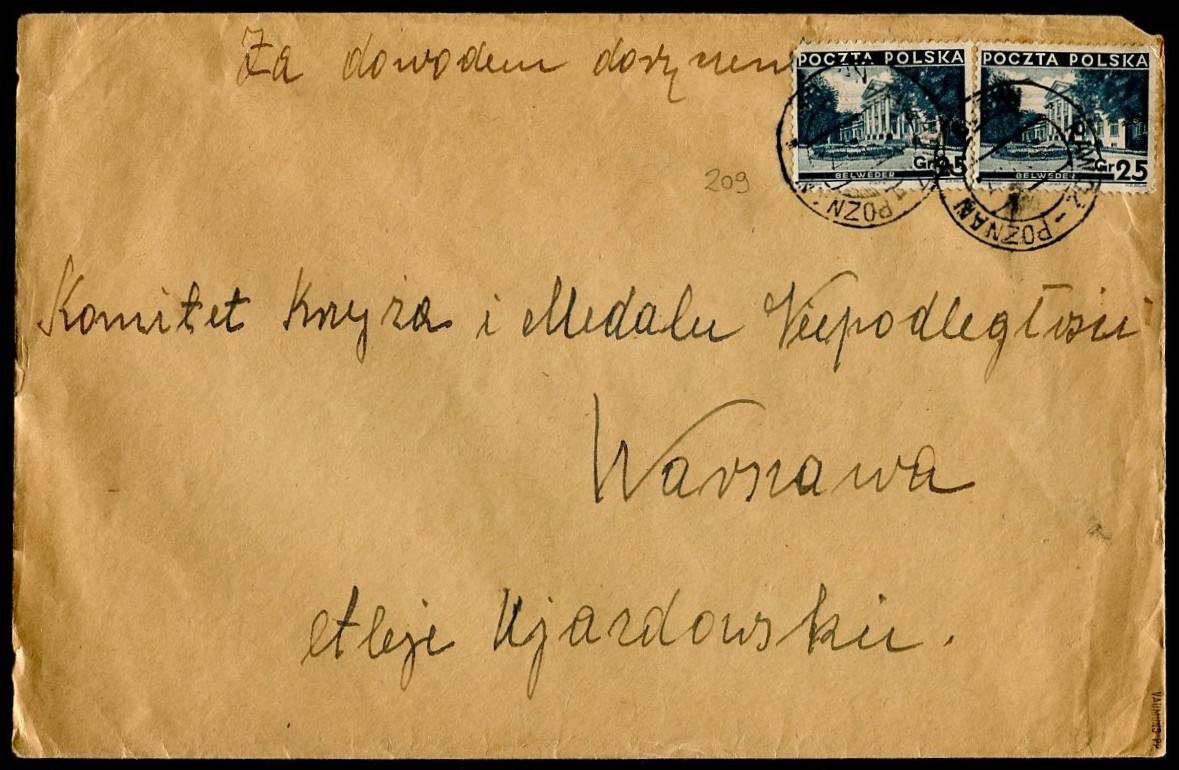 Za dowodem doręczen
POCZTA POLSKA
Gr 25
BELWEDER
POCZTA POLSKA
Gr 25
BELWEDER
POZNAŃ
POZNAŃ
209
Komitet Krzyża i Medalu Niepodległości
Warszawa
Aleje Ujazdowskie.